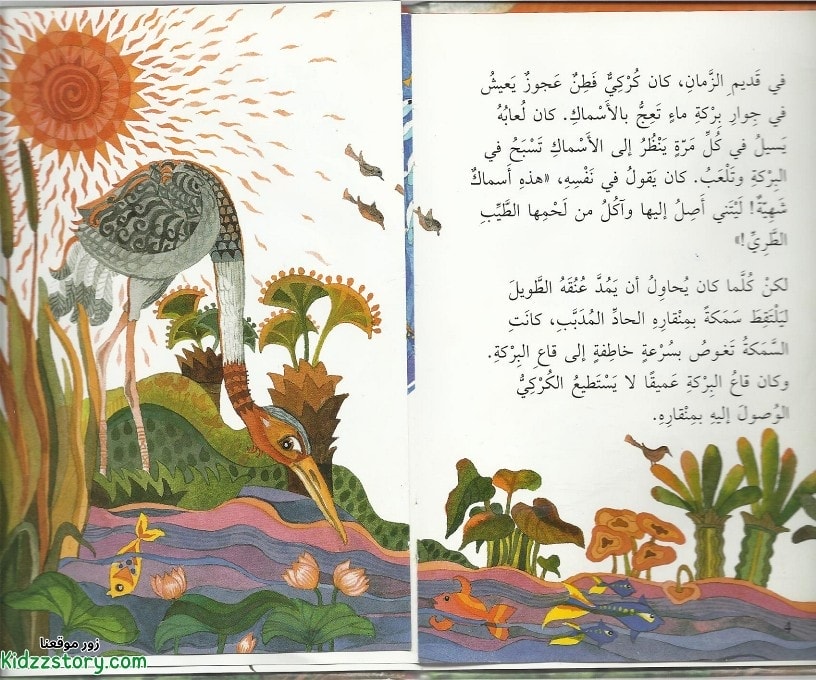 في قَديمِ الزَّمانِ، كان كُرْكِيٌّ فَطِنٌ عَجوزٌ يَعيشُ
في جِوارِ بِرْكةِ ماءٍ تَعِجُّ بالأَسْماكِ. كان لُعابُهُ
يَسيلُ في كُلِّ مَرّةٍ يَنْظُرُ إلى الأَسْماكِ تَسْبَحُ في
البِرْكةِ وتَلْعَبُ. كان يَقولُ في نَفْسِهِ، «هذهِ أَسماكٌ
شَهِيّةٌ! لَيْتَني أَصِلُ إليها وآكُلُ من لَحْمِها الطَّيِّبِ
الطَّرِيِّ!»
لكنْ كُلَّما كان يُحاوِلُ أن يَمُدَّ عُنُقَهُ الطَّويلَ
ليَلْتَقِطَ سَمَكةً بمِنْقارِهِ الحادِّ المُدَبَّبِ، كانَتِ
السَّمَكةُ تَغوصُ بسُرْعةٍ خاطِفةٍ إلى قاعِ البِرْكةِ.
وكان قاعُ البِرْكةِ عَميقًا لا يَسْتَطيعُ الكُرْكِيُّ
الوُصولَ إليهِ بمِنْقارِهِ.
٤
زور موقعنا
Kidzzstory.com